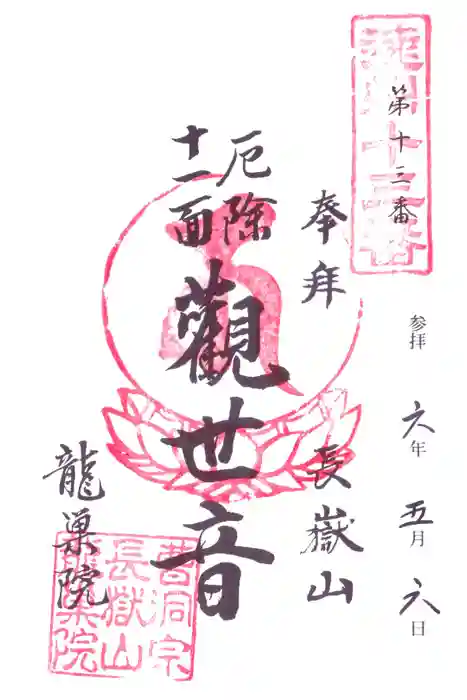 遠州十三番
第十三番
参拝 六年 五月 六日
奉拝 長嶽山
厄除
十一面
觀世音
龍巣院
曹洞宗
長嶽山
龍巣院